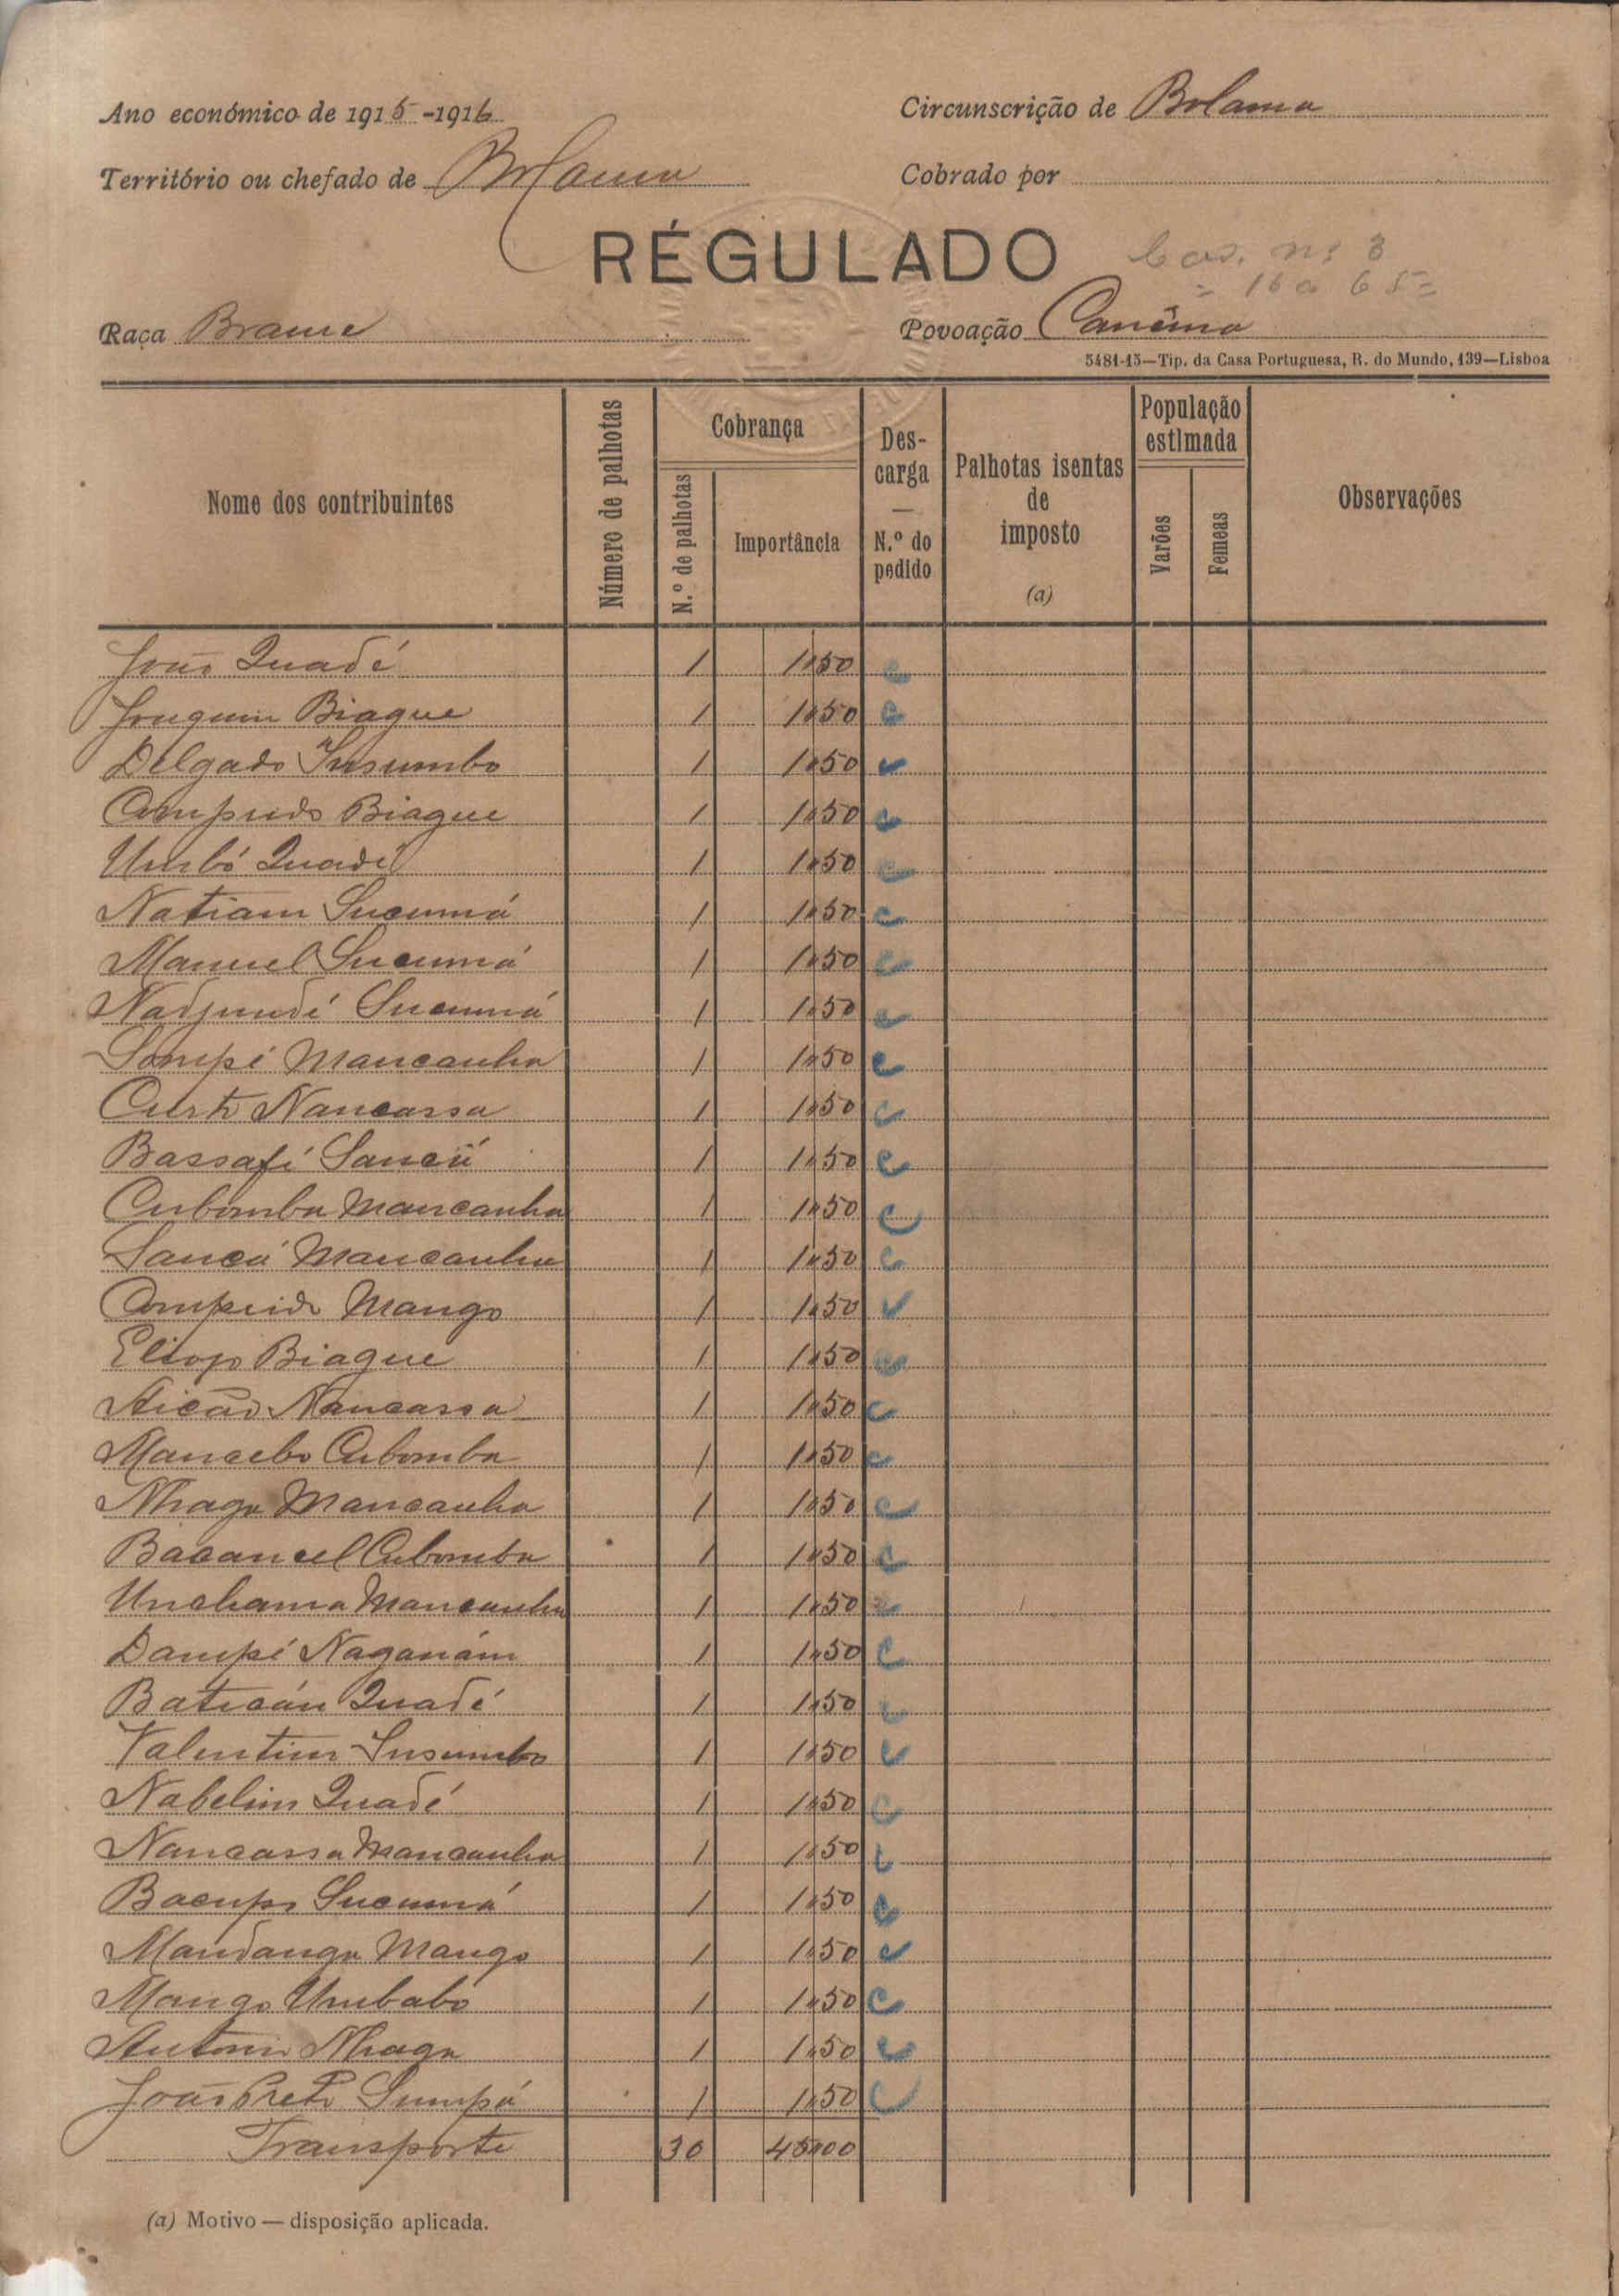 Ano económico de 1915-1916
Circunscrição de Bolama
Território ou chefado de Bolama
Cobrado por
RÉGULADO
Raça Brame
Povoação Canême
5481-15—Tip. da Casa Portuguesa, R. do Mundo, 139—Lisboa
Nome dos contribuintes
Número de palhotas
Cobrança
N.º de palhotas
Importância
Descarga — N.º do pedido
Palhotas isentas de imposto (a)
População estimada
Varões
Femeas
Observações
João Quadé 1 1$50
Joaquim Biague 1 1$50
Delgado Insumbo 1 1$50
Comprido Biague 1 1$50
Umbó Quadé 1 1$50
Natiam Sucumá 1 1$50
Manuel Sucumá 1 1$50
Nadjundé Sucumá 1 1$50
Sompé Mancanha 1 1$50
Curto Nancassa 1 1$50
Bassafí 1 1$50
Cubomba Mancanha 1 1$50
Sancá Mancanha 1 1$50
Comprido Mango 1 1$50
Biague 1 1$50
Nancassa 1 1$50
Mancebo Cubomba 1 1$50
Nhaga Mancanha 1 1$50
Bacancel Cubomba 1 1$50
Unchama Mancanha 1 1$50
Dampé Naganám 1 1$50
Baticán Quadé 1 1$50
Valentim Insumbo 1 1$50
Nabelim Quadé 1 1$50
Nancassa Mancanha 1 1$50
Bacupo Sucumá 1 1$50
Mandanga Mango 1 1$50
Mango Umbabó 1 1$50
Antonio Nhaga 1 1$50
João Preto Sumpá 1 1$50
Transporte 30 45$00
(a) Motivo — disposição aplicada.